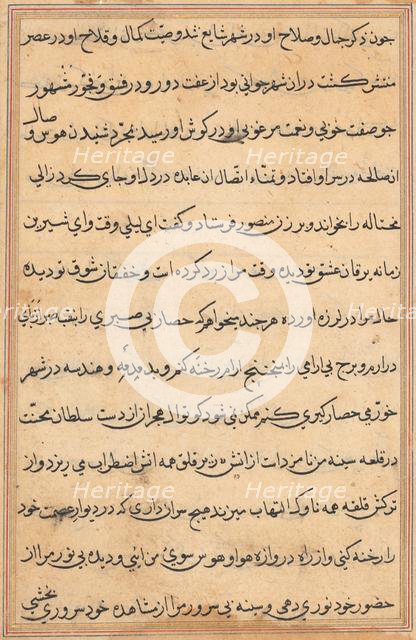 چون ذکر جمال و صلاح او در شهر شایع شد و صیت کمال و فلاح او در عصر
منتشر کشت در ان شهر جوانی بود از عفت دور و در فسق و فجور مشهور
چو صفت خوبی و نعت مرغوبی او در کوش او رسید بمجرد شنیدن هوس وصال
ان صالحه در سر او افتاد و تمناء اتصال ان عابده در دل او جای کرد زالی
محتاله را بخواند و بر زن منصور فرستاد و کفت ای لیلی وقت و ای شیرین
زمانه یرقان عشق تو دیده وقت مرا زرد کرده است و خفقان شوق تو دیده
در لرزه اورده هر چند میخواهم که حصار بی صبری را
در ارم و برج بی ارامی را ارام رخنه کنم و هندسه در شهر
خورمی حصار کیری کنم ممکن نمی شود کوتوال هجر از دست سلطان محنت
در قلعه سینه من نامزدست از اتش همه اتش اضطراب می ریزد و از
ترکش قلقه همه ناوک التهاب میزند هیچ سر ان داری که در دیوار عصمت خود
را رخنه کنی و از راه دروازه هوا و هوس سوی من ایی و دیده بی نور مرا از
حضور خود نوری دهی و سینه بی سرور مرا از مشاهده خود سروری بخشی
Heritage
Heritage
Heritage
Heritage
Heritage
Heritage
Heritage
Heritage